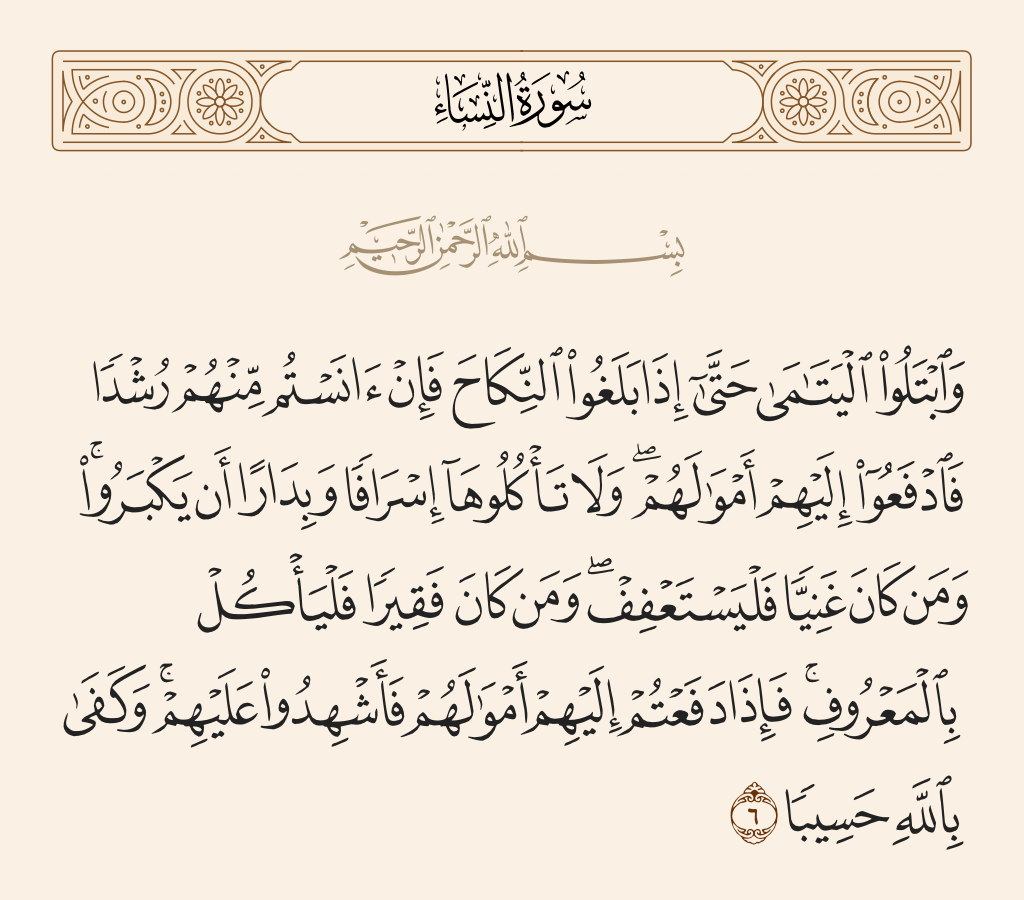 سُورَةُ النِّسَاءِ
بِسْمِ ٱللَّهِ ٱلرَّحْمَٰنِ ٱلرَّحِيمِ
وَٱبْتَلُوا۟ ٱلْيَتَـٰمَىٰ حَتَّىٰٓ إِذَا بَلَغُوا۟ ٱلنِّكَاحَ فَإِنْ ءَانَسْتُم مِّنْهُمْ رُشْدًا
فَٱدْفَعُوٓا۟ إِلَيْهِمْ أَمْوَٰلَهُمْ ۖ وَلَا تَأْكُلُوهَآ إِسْرَافًا وَبِدَارًا أَن يَكْبَرُوا۟ ۚ
وَمَن كَانَ غَنِيًّا فَلْيَسْتَعْفِفْ ۖ وَمَن كَانَ فَقِيرًا فَلْيَأْكُلْ
بِٱلْمَعْرُوفِ ۚ فَإِذَا دَفَعْتُمْ إِلَيْهِمْ أَمْوَٰلَهُمْ فَأَشْهِدُوا۟ عَلَيْهِمْ ۚ وَكَفَىٰ
بِٱللَّهِ حَسِيبًا ٦